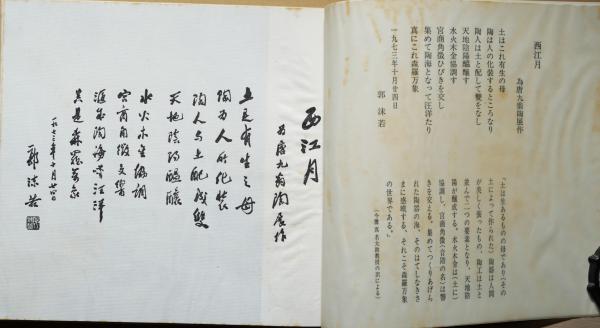 西江月
為唐九翁陶展作
土はこれ有生の母
陶は人の化装するところなり
陶人は土と配して雙をなし
天地陰陽醞醸す
水火木金協調す
宮商角徴ひびきを交し
集めて陶海となって汪洋たり
真にこれ森羅万象
一九七三年十月廿四日
郭沫若
「土は生あるものの母であり(その
土によって作られた)陶器は人間
が美しく装ったもの、陶工は土と
並んで二つの要素となり、天地陰
陽が醸成する。水火木金は(土に)
協調し、宮商角徴(音階の名)は響
きを交える。集めてつくりあげら
れた陶器の海、そのはてしなきさ
まに感嘆する、それこそ森羅万象
の世界である。」
(今鷹真名大助教授の訳による)
西江月
为唐九翁陶展作
土是有生之母
陶为人所化装
陶人与土配成双
天地阴阳醖酿
水火木金协调
宫商角徵交响
汇成陶海叹汪洋
真是森罗万象
一九七三年十月廿四日
郭沫若